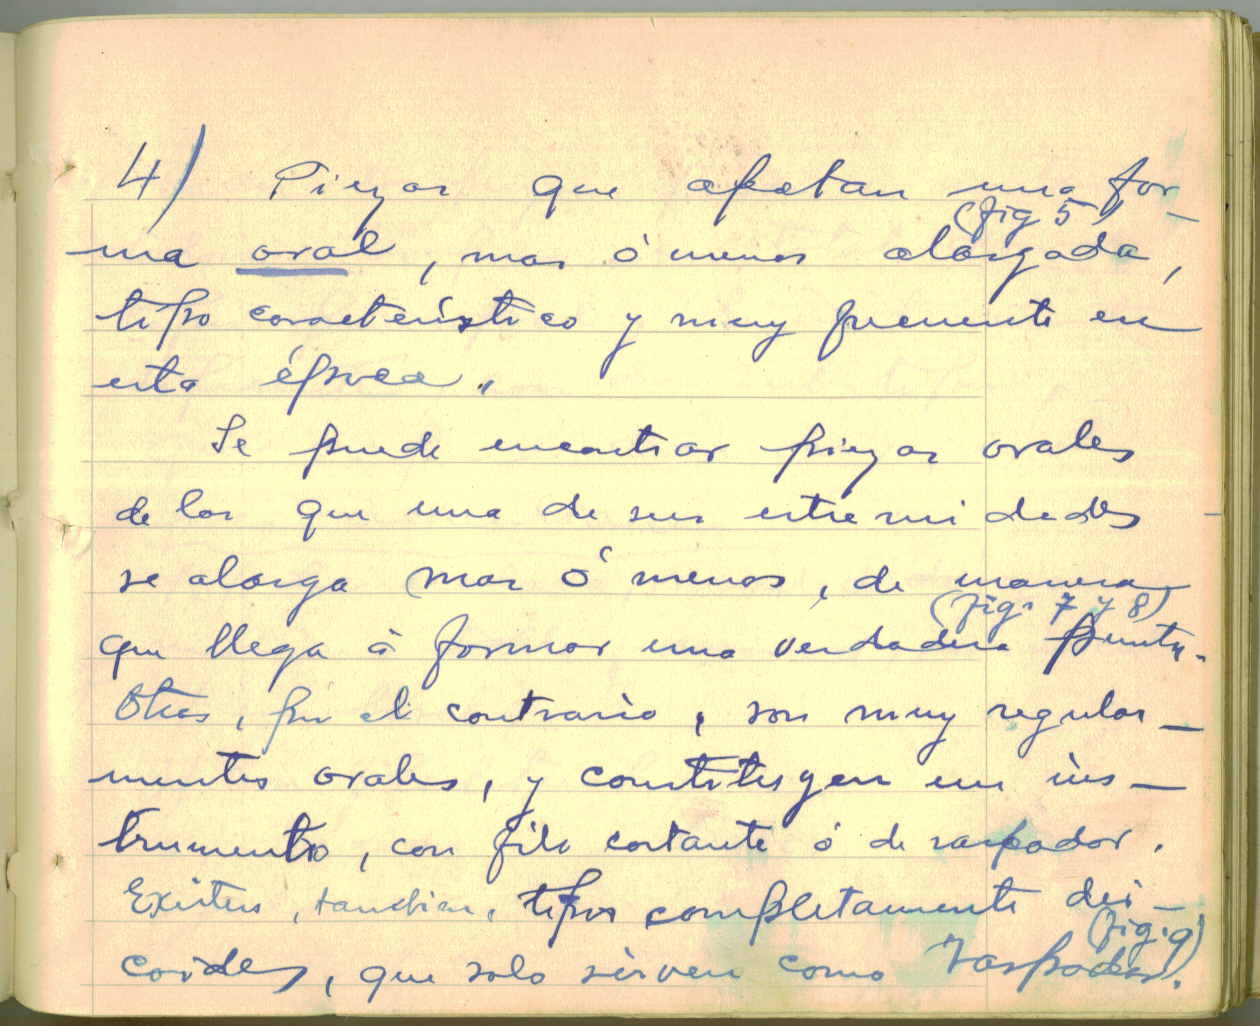 4) Piezas que afetan una for-
(fig 5)
ma oval, mas ó menos alargada,
tipo característico y muy frecuente en
esta época.
Se puede encontrar piezas ovales
de las que una de sus extremidades
se alarga mas ó menos, de manera
(figs 7 y 8)
que llega á formar una verdadera punta.
Otras, por el contrario, son muy regular-
mentes ovales, y constituyen un ins-
trumento, con filo cortante ó de raspador.
Existen, tambien, tipos completamente dis-
(fig. 9)
coides, que solo sirven como raspador.